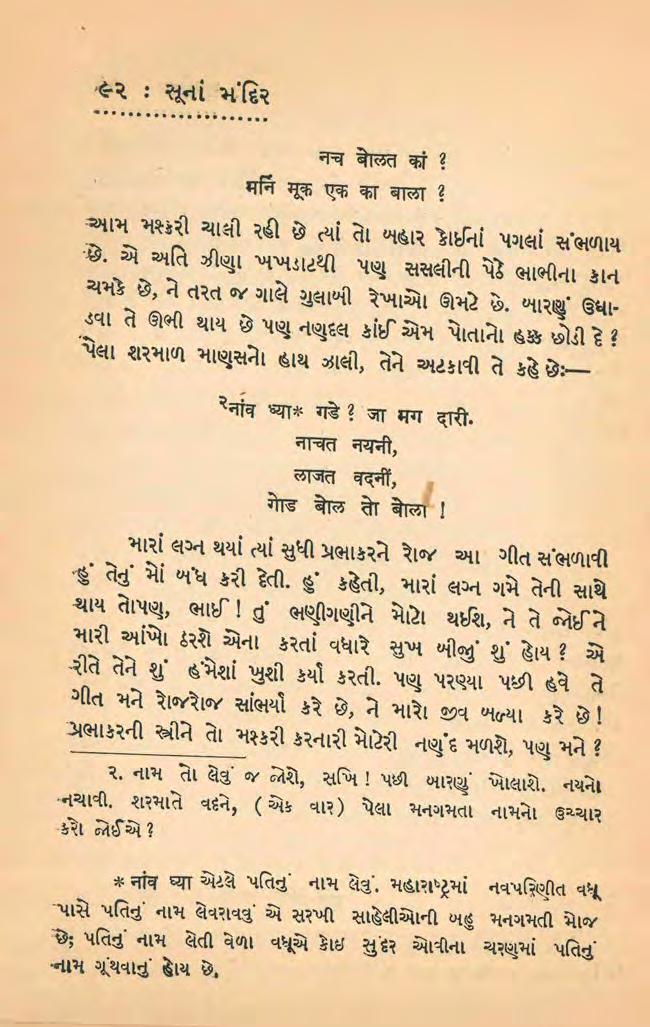 ૯૨ : સૂનાં મંદિર
नच बोलत कां ?
मनिं मूक एक का बाला ?
આમ મશ્કરી ચાલી રહી છે ત્યાં તો બહાર કોઈનાં પગલાં સંભળાય
છે. એ અતિ ઝીણા ખખડાટથી પણ સસલીની પેઠે ભાભીના કાન
ચમકે છે, ને તરત જ ગાલે ગુલાબી રેખાઓ ઊમટે છે. બારણું ઉઘા-
ડવા તે ઊભી થાય છે પણ નણદલ કાંઈ એમ પોતાનો હક્ક છોડી દે ?
પેલા શરમાળ માણસનો હાથ ઝાલી, તેને અટકાવી તે કહે છેઃ—
२नांव घ्या* गडे ? जा मग दारी.
नाचत नयनी,
लाजत वदनीं,
गोड बोल तो बोला !
મારાં લગ્ન થયાં ત્યાં સુધી પ્રભાકરને રોજ આ ગીત સંભળાવી
હું તેનું મોં બંધ કરી દેતી. હું કહેતી, મારાં લગ્ન ગમે તેની સાથે
થાય તોપણ, ભાઈ ! તું ભણીગણીને મોટો થઈશ, ને તે જોઈને
મારી આંખો ઠરશે એના કરતાં વધારે સુખ બીજું શું હોય ? એ
રીતે તેને શું હંમેશાં ખુશી કર્યા કરતી. પણ પરણ્યા પછી હવે તે
ગીત મને રોજરોજ સાંભર્યા કરે છે, ને મારો જીવ બળ્યા કરે છે !
પ્રભાકરની સ્ત્રીને તો મશ્કરી કરનારી મોટેરી નણંદ મળશે, પણ મને ?
૨. નામ તો લેવું જ જોશે, સખિ ! પછી બારણું ખોલાશે. નયનો
નચાવી. શરમાતે વદને, ( એક વાર ) પેલા મનગમતા નામનો ઉચ્ચાર
કરો જોઈએ ?
* नांव घ्या એટલે પતિનું નામ લેવું. મહારાષ્ટ્રમાં નવપરિણીત વધૂ
પાસે પતિનું નામ લેવરાવવું એ સરખી સાહેલીઓની બહુ મનગમતી મોજ
છે; પતિનું નામ લેતી વેળા વધૂએ કોઇ સુંદર ઓવીના ચરણમાં પતિનું
નામ ગૂંથવાનું હોય છે.